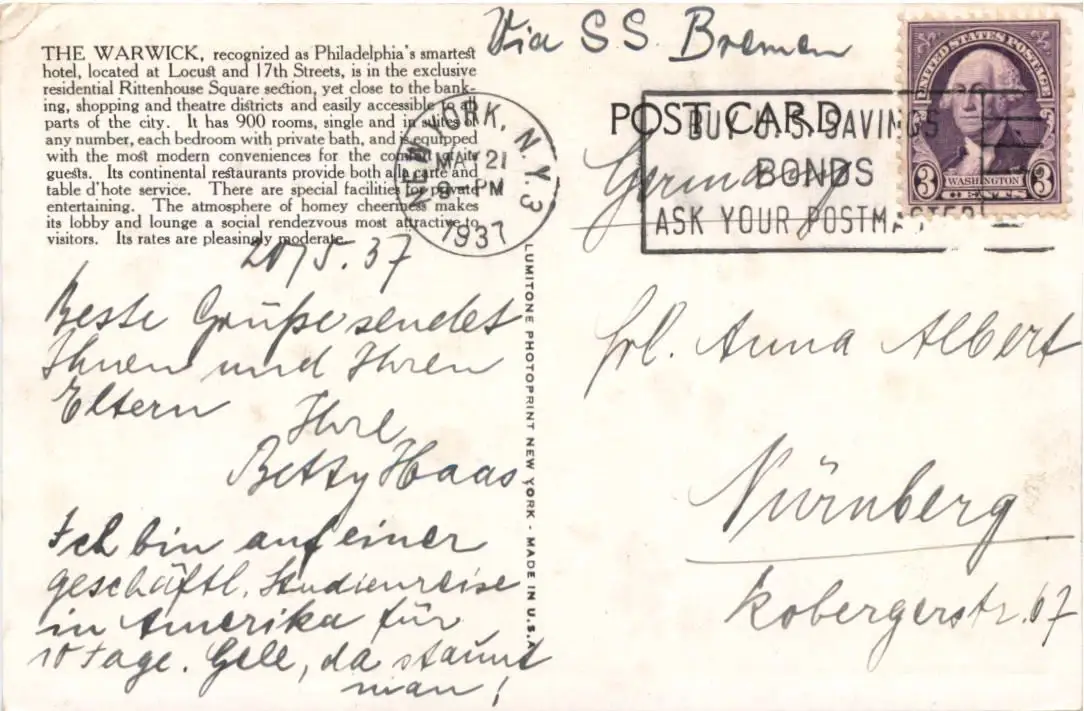 Via S.S. Bremen
THE WARWICK, recognized as Philadelphia's smartest
hotel, located at Locust and 17th Streets, is in the exclusive
residential Rittenhouse Square section, yet close to the bank-
ing, shopping and theatre districts and easily accessible to all
parts of the city. It has 900 rooms, single and in suites of
any number, each bedroom with private bath, and is equipped
with the most modern conveniences for the comfort of its
guests. Its continental restaurants provide both a la carte and
table d'hote service. There are special facilities for private
entertaining. The atmosphere of homey cheeriness makes
its lobby and lounge a social rendezvous most attractive to
visitors. Its rates are pleasingly moderate.
NEW YORK, N.Y. 3
MAY 21
PM
1937
POST CARD
BUY U.S. SAVINGS
BONDS
ASK YOUR POSTMASTER
UNITED STATES POSTAGE
3 WASHINGTON 3
CENTS
Germany
20/5.37
Beste Grüße sendet
Ihnen und Ihren
Eltern
Ihre
Betty Haas
Ich bin auf einer
geschäftl. Studienreise
in Amerika für
10 Tage. Gell, da staunt
man!
LUMITONE PHOTOPRINT NEW YORK - MADE IN U.S.A.
Frl. Anna Albert
Nürnberg
Kobergerstr. 67